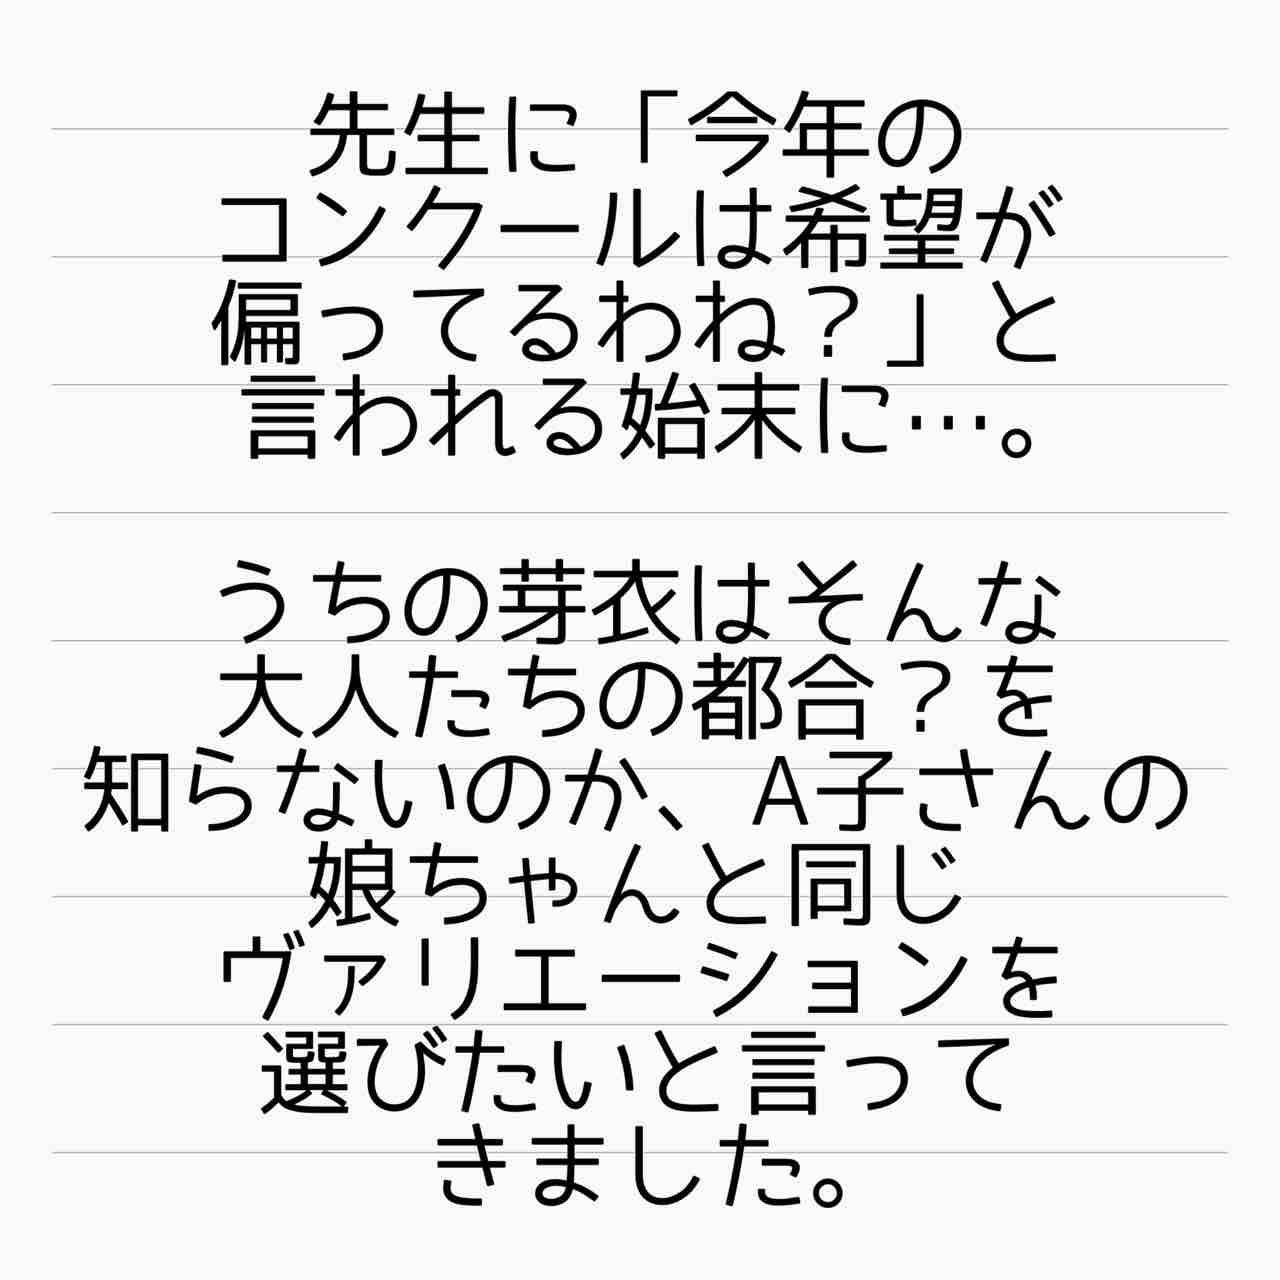 先生に「今年の
コンクールは希望が
偏ってるわね？」と
言われる始末に…。
うちの芽衣はそんな
大人たちの都合？を
知らないのか、A子さんの
娘ちゃんと同じ
ヴァリエーションを
選びたいと言って
きました。